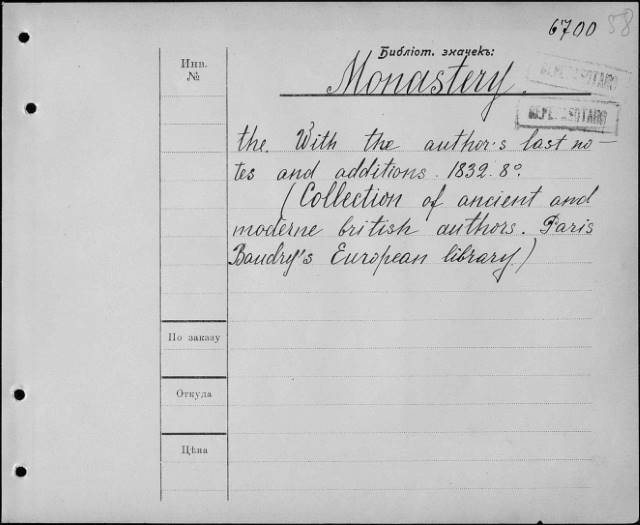 6700 58
Библіот. значекъ:
Инв.
№
Monastery.
the. With the author's last no-
tes and additions. 1832. 8°.
(Collection of ancient and
moderne british authors. Paris
Baudry's European library.)
По заказу
Откуда
Цѣна